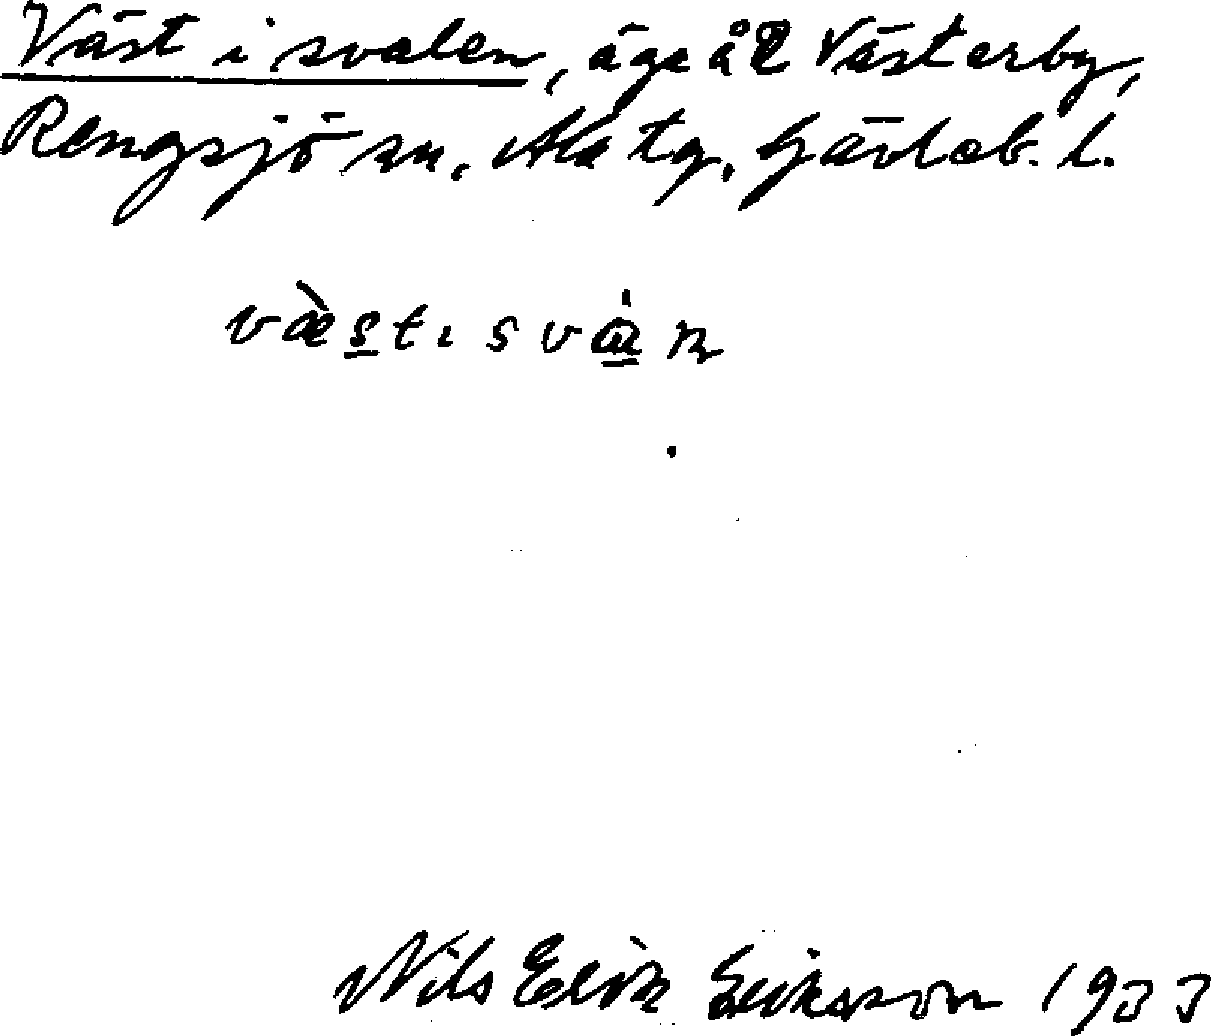 Väst i svalen, äga å Västerby,
Rengsjö sn. Ala tg. Gävleb. l.
væ̀st ı svá̱n
Nils Erik Eriksson 1933